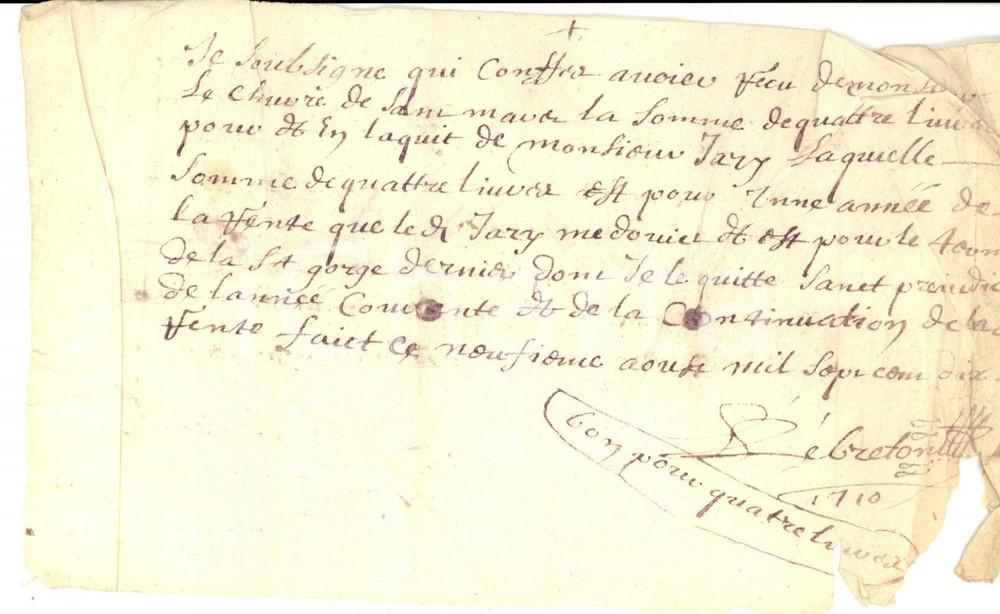 +
Je soubsigne qui Confesse avoier reçu demonsieur
Le Chuvré de saint la somme dequattre livres
pour et En laquit de monsieur Jary Laquelle
somme dequattre livres est pour Inne année de
la rente que ledt Jary me douier et est pour le
de la St gorge dernier dont Je le quitte sanct preiudice
de lannéé Courente et de la Continuation de la
rente faict ce neufieme aoust mil sept cent dix
Le breton
1710
bon pour quatre livres